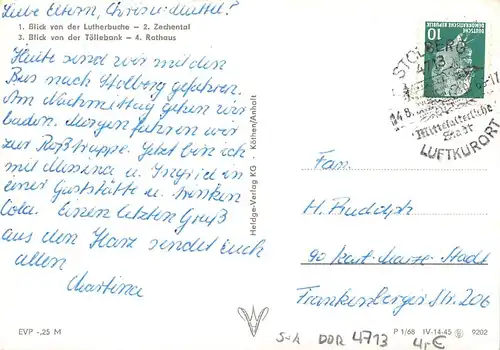 Liebe Eltern,
1. Blick von der Lutherbuche – 2. Zechental
3. Blick von der Töllebank – 4. Rathaus
Heute sind wir mit den
Bus nach Stolberg gefahren.
Am Nachmittag gehen wir
baden. Morgen fahren wir
zur Roßtrappe. Jetzt bin ich
mit Messina u. Ingrid in
einer Gaststätte u. trinken
Cola. Einen letzten Gruß
aus den Harz sendet Euch
allen
Martina
EVP -,25 M
Heldge-Verlag KG · Köthen/Anhalt
DEUTSCHE
DEMOKRATISCHE REPUBLIK
10
STOLBERG
4713
14.8.
Mittelalterliche
Stadt
LUFTKURORT
Fam.
H. Rudolph
90 Karl-Marx-Stadt
Frankenberger Str. 206
P 1/68 IV-14-45 9202
DDR 4713 4,-€